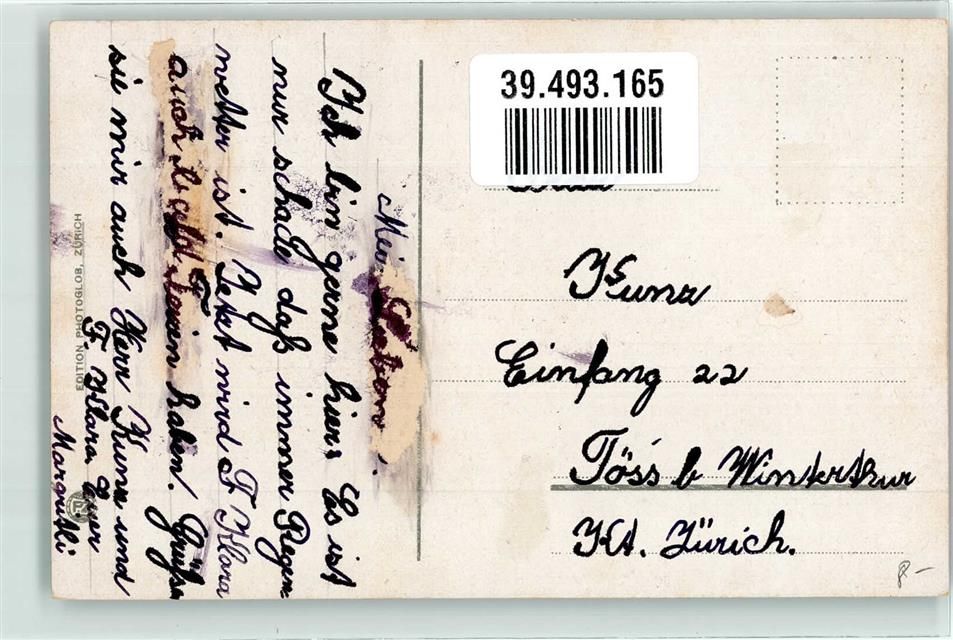 39.493.165
Kunz
Einfang 22
Töss b Winterthur
Kt. Zürich.
Ich bin gerne hier. Es ist
nur schade daß immer Regen-
wetter ist. Jetzt wird F. Klara
auch haben. Grüßen
sie mir auch Herr Kunz und
F. Klara Euer
Margritli
EDITION PHOTOGLOB, ZÜRICH